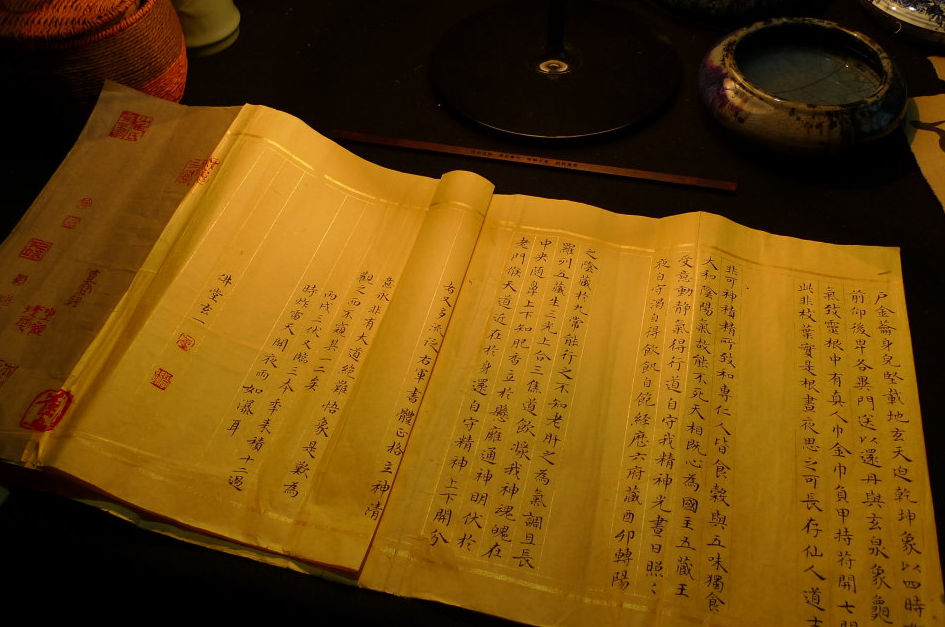 戶金籥身完堅載地玄天迫乾坤象以四時
前仰後卑各異門送以還丹與玄泉象龜
氣致靈根中有真人巾金巾負甲持符開七門
此非枝葉實是根晝夜思之可長存仙人道士
非可神積精所致和專仁人皆食穀與五味獨食
大和陰陽氣故能不死天相既心為國主五藏王
受意動靜氣得行道自守我精神光晝日照〻
夜自守渴自得飲飢自飽經歷六府藏酉卯轉陽
之陰藏於九常能行之不知老肝之為氣調且長
羅列五藏生三光上合三焦道飲漿我神魂魄在
中央隨鼻上下知肥香立於懸雍通神明伏於
老門候天道近在於身還自守精神上下開分
右軍書體正格立神清
意永非有大道絕難悟象是歎為
觀之而不窺其一二矣
丙戌三伏又臨三本 季來積十二過
時昨當天開夜雨如瀑耳
佛堂玄